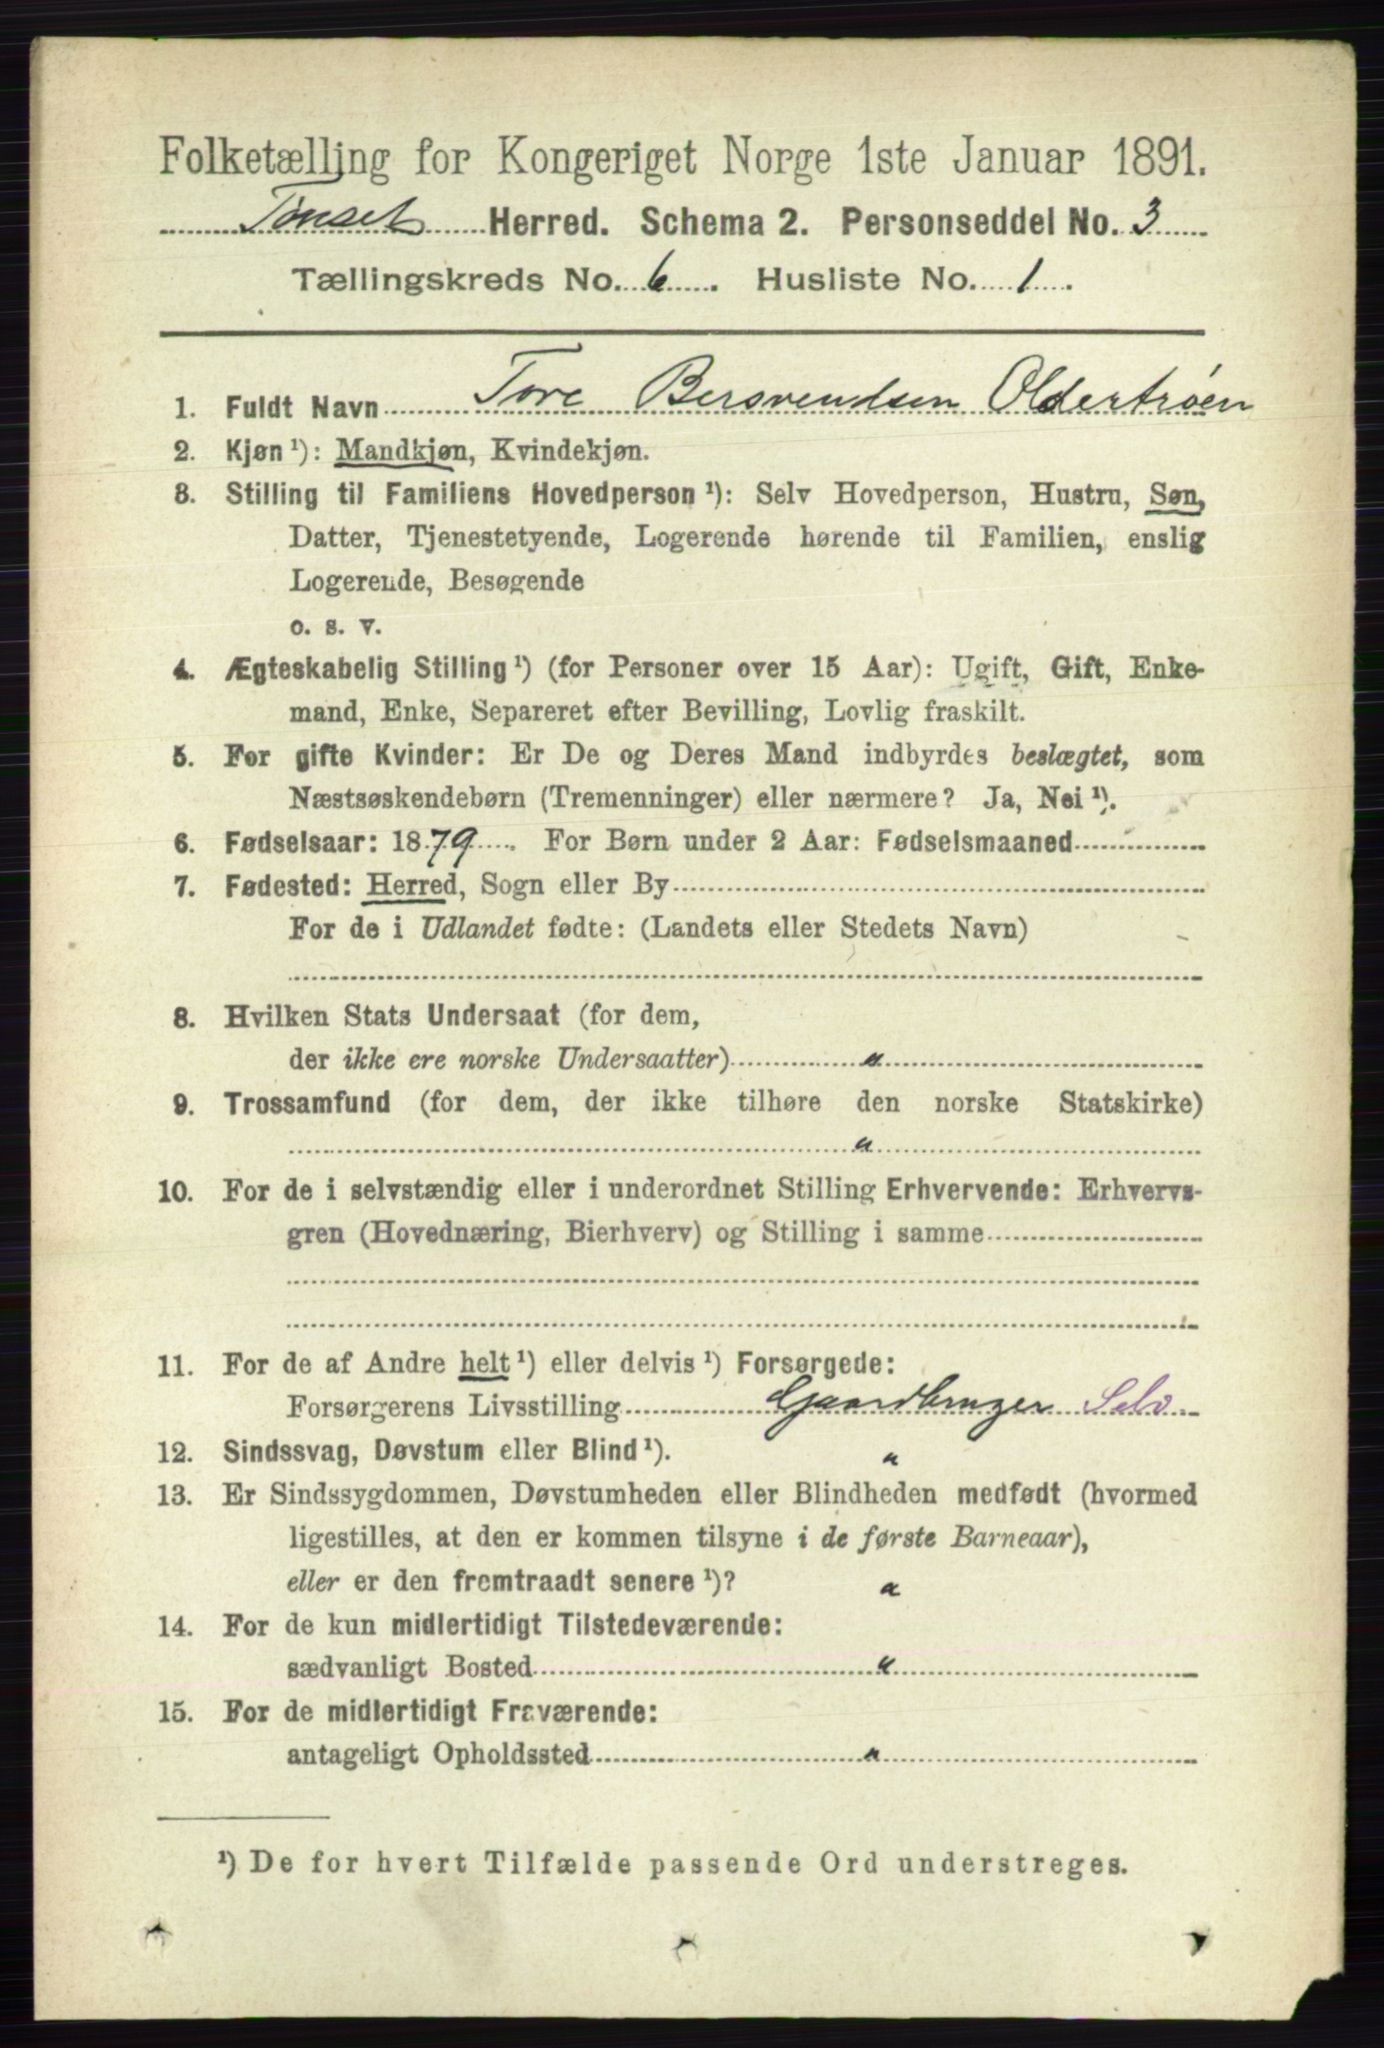 Folketælling for Kongeriget Norge 1ste Januar 1891.
Tønset Herred. Schema 2. Personseddel No. 3
Tællingskreds No. 6. Husliste No. 1.
1. Fuldt Navn Tore Bersvendsen Oldertrøen
2. Kjøn ¹): Mandkjøn, Kvindekjøn.
3. Stilling til Familiens Hovedperson ¹): Selv Hovedperson, Hustru, Søn,
Datter, Tjenestetyende, Logerende hørende til Familien, enslig
Logerende, Besøgende
o. s. v.
4. Ægteskabelig Stilling ¹) (for Personer over 15 Aar): Ugift, Gift, Enke-
mand, Enke, Separeret efter Bevilling, Lovlig fraskilt.
5. For gifte Kvinder: Er De og Deres Mand indbyrdes beslægtet, som
Næstsøskendebørn (Tremenninger) eller nærmere? Ja, Nei ¹).
6. Fødselsaar: 1879. For Børn under 2 Aar: Fødselsmaaned
7. Fødested: Herred, Sogn eller By
For de i Udlandet fødte: (Landets eller Stedets Navn)
8. Hvilken Stats Undersaat (for dem,
der ikke ere norske Undersaatter) "
9. Trossamfund (for dem, der ikke tilhøre den norske Statskirke)
"
10. For de i selvstændig eller i underordnet Stilling Erhvervende: Erhvervs-
gren (Hovednæring, Bierhverv) og Stilling i samme
11. For de af Andre helt ¹) eller delvis ¹) Forsørgede:
Forsørgerens Livsstilling Gaardbruger Selv
12. Sindssvag, Døvstum eller Blind ¹). "
13. Er Sindssygdommen, Døvstumheden eller Blindheden medfødt (hvormed
ligestilles, at den er kommen tilsyne i de første Barneaar),
eller er den fremtraadt senere ¹)? "
14. For de kun midlertidigt Tilstedeværende:
sædvanligt Bosted "
15. For de midlertidigt Fraværende:
antageligt Opholdssted "
¹) De for hvert Tilfælde passende Ord understreges.